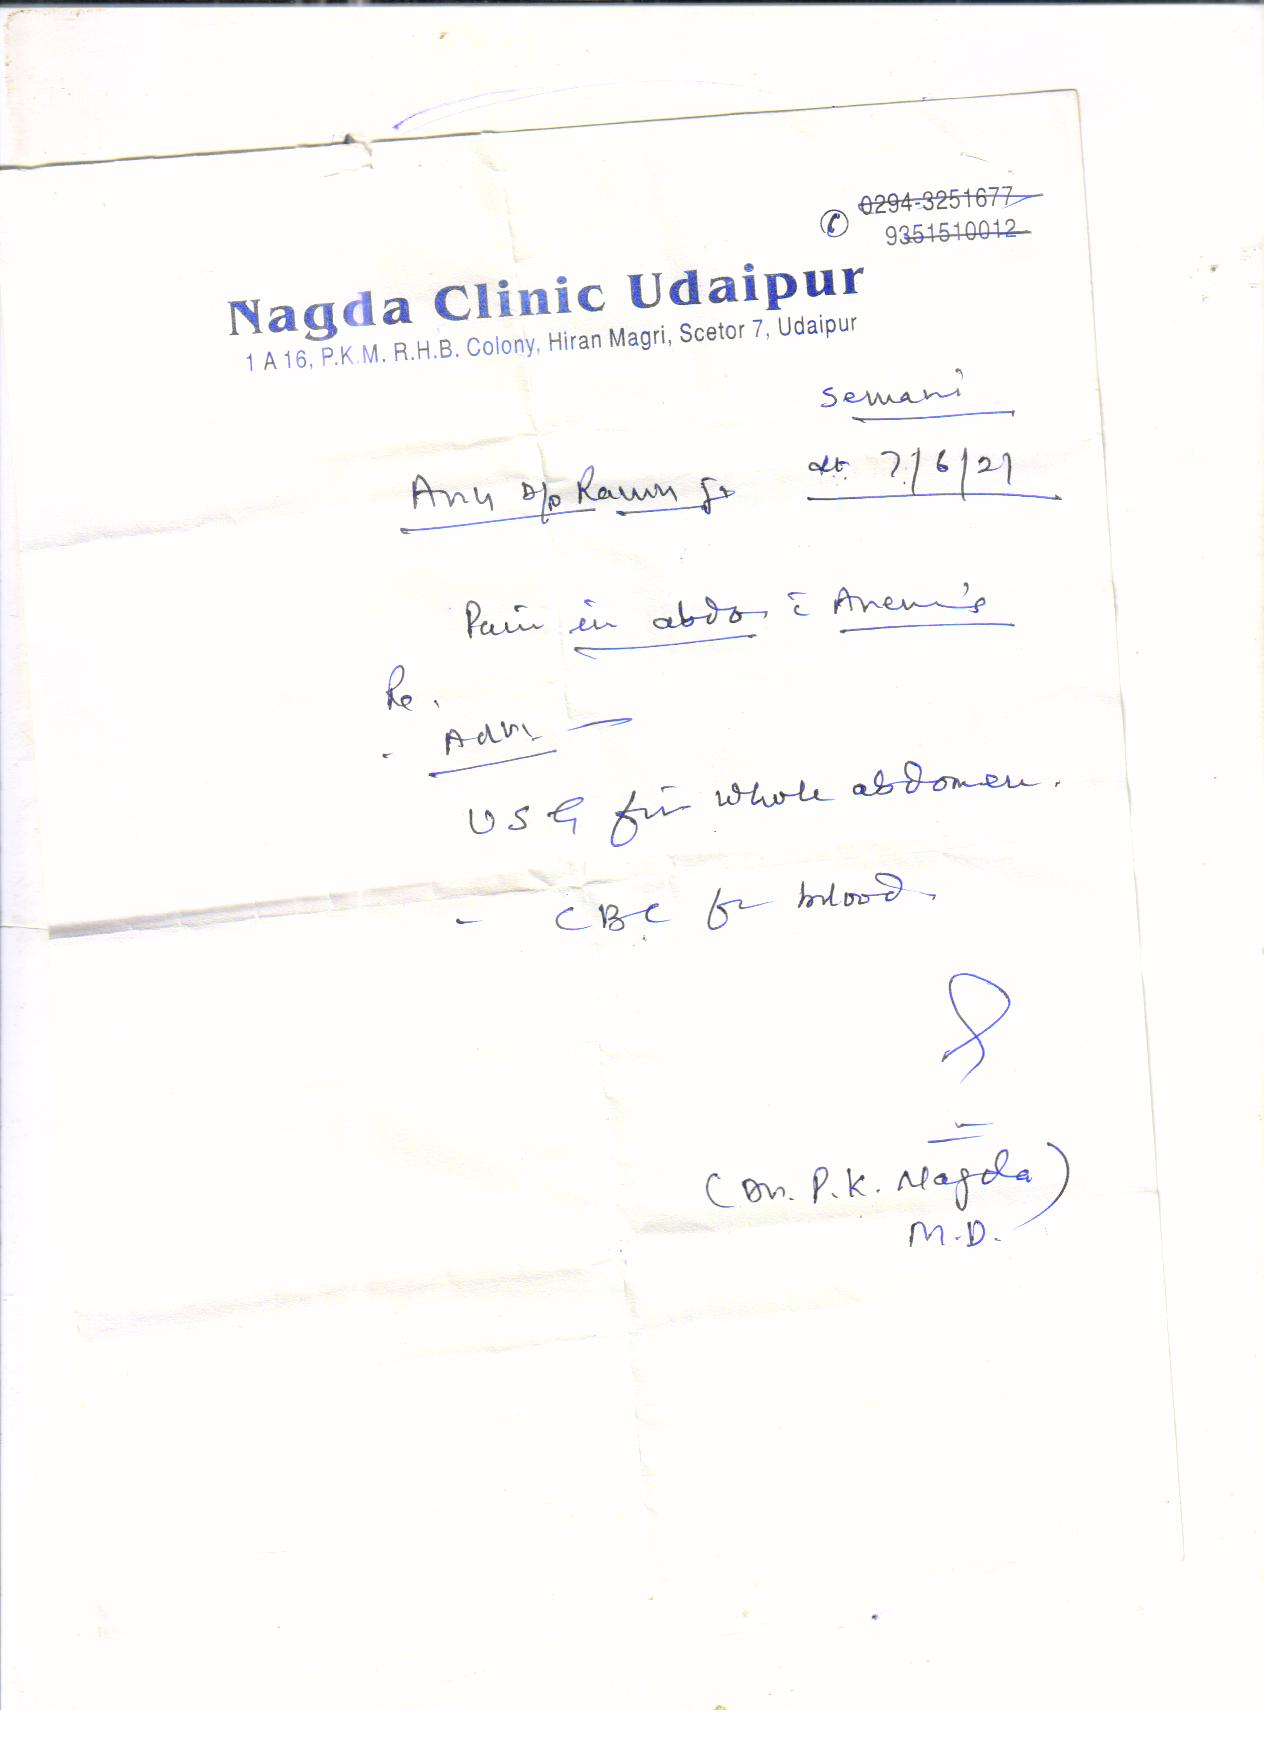 0294-3251677
9351510012
Nagda Clinic Udaipur
1 A 16, P.K.M. R.H.B. Colony, Hiran Magri, Scetor 7, Udaipur
Semani
dt. 7/6/21
Anu D/o
Pain in abdo. c̄
Re.
- Adv. —
USG for whole abdomen.
- CBC for blood.
(Dr. P.K. Nagda)
M.D.